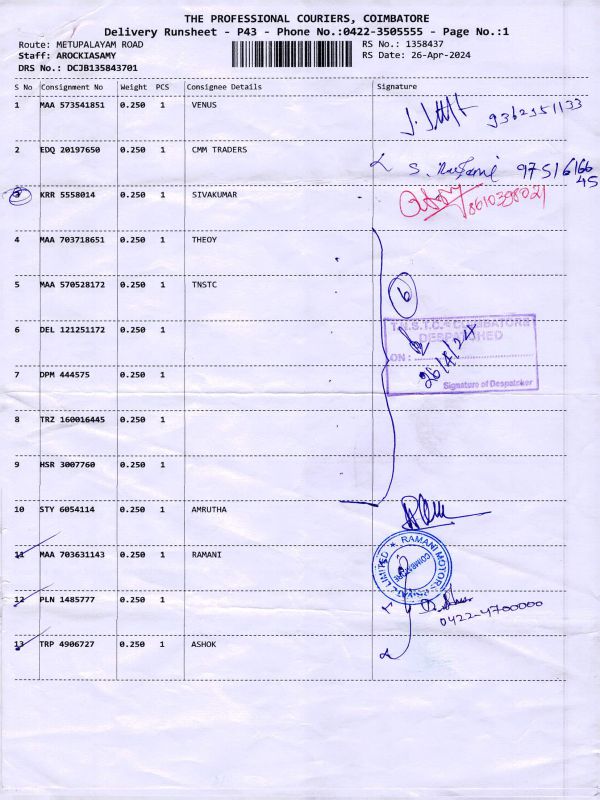 THE PROFESSIONAL COURIERS, COIMBATORE
Delivery Runsheet - P43 - Phone No.:0422-3505555 - Page No.:1
Route: METUPALAYAM ROAD RS No.: 1358437
Staff: AROCKIASAMY RS Date: 26-Apr-2024
DRS No.: DCJB135843701
S No Consignment No Weight PCS Consignee Details Signature
1 MAA 573541851 0.250 1 VENUS
2 EDQ 20197650 0.250 1 CMM TRADERS
97516166
45
3 KRR 5558014 0.250 1 SIVAKUMAR
8610398021
4 MAA 703718651 0.250 1 THEOY
5 MAA 570528172 0.250 1 TNSTC
6
6 DEL 121251172 0.250 1
T.N.S.T.C. COIMBATORE
DESPATCHED
ON :
26/4/24
Signature of Despatcher
7 DPM 444575 0.250 1
8 TRZ 160016445 0.250 1
9 HSR 3007760 0.250 1
10 STY 6054114 0.250 1 AMRUTHA
11 MAA 703631143 0.250 1 RAMANI
RAMANI MOTORS PRIVATE LIMITED
COIMBATORE
12 PLN 1485777 0.250 1
0422-4700000
13 TRP 4906727 0.250 1 ASHOK